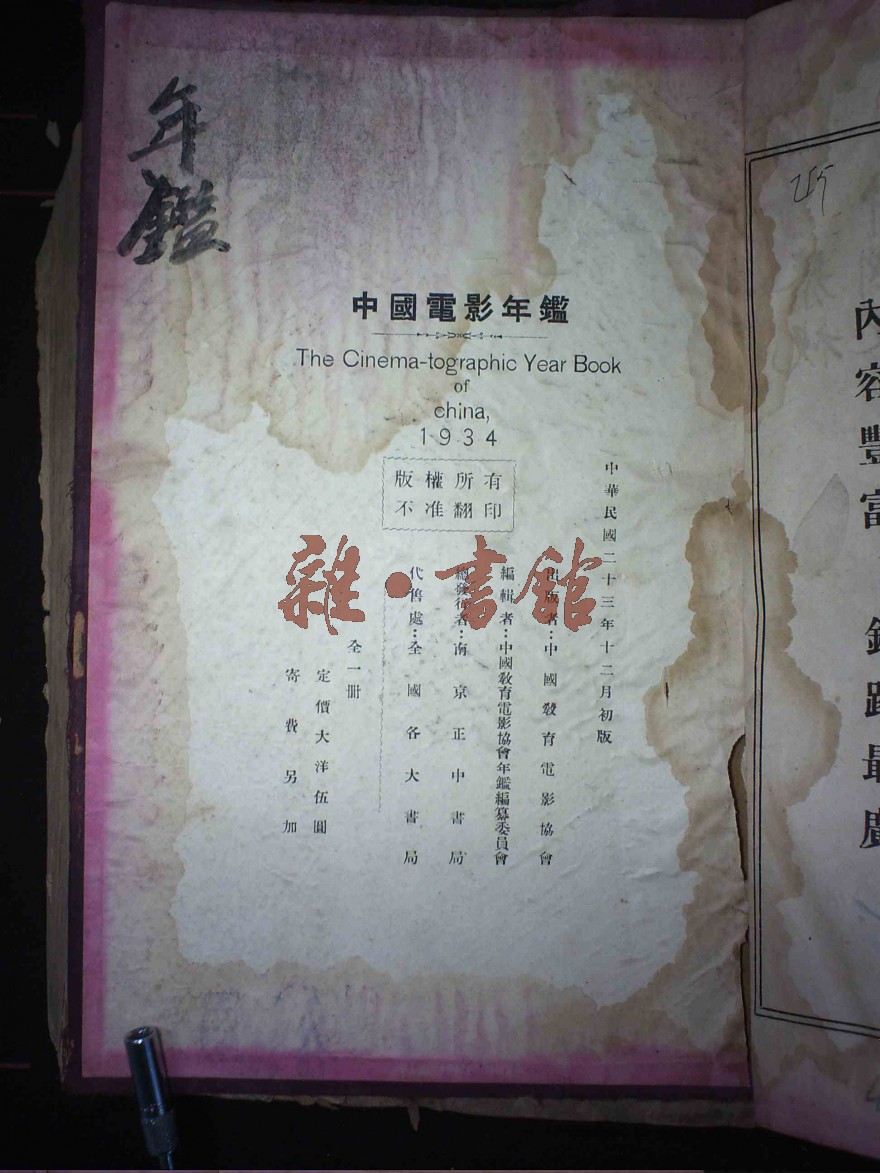 年鑑
中國電影年鑑
The Cinema-tographic Year Book
of
china,
1934
版權所有
不准翻印
中華民國二十三年十二月初版
出版者：中國教育電影協會
編輯者：中國教育電影協會年鑑編纂委員會
總發行者：南京正中書局
代售處：全國各大書局
全一冊
定價大洋伍圓
寄費另加
雜·書館
內容豐富